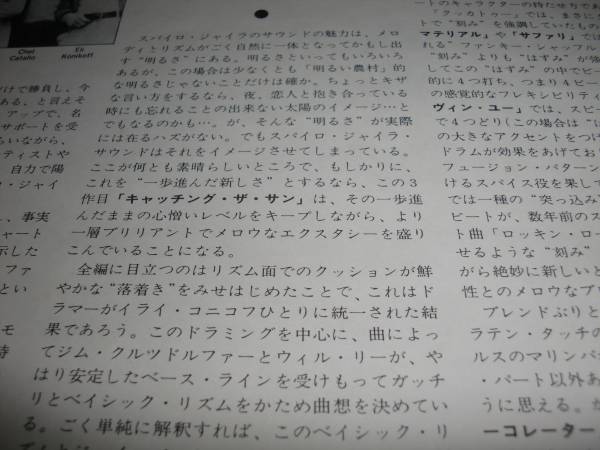 Chet
Catallo
Eli
Konikoff
だけで勝負し、今
ある、と言えそ
アップで、名
サポートを受
らいながら、
ティストや
自力で陽
・ジャイ
、事実
ャート
示した
ファ
とい
モ
時
スパイロ・ジャイラのサウンドの魅力は、メロ
ディとリズムがごく自然に一体となってかもし出
す“明るさ”にある。明るさといってもいろいろ
あるが、この場合は少なくとも「明るい農村」的
な明るさじゃないことだけは確か。ちょっとキザ
な言い方をするなら、夜、恋人と抱き合っている
時にも忘れることの出来ない太陽のイメージ…と
でもなるのかも…。が、そんな“明るさ”が実際
には在るハズがない。でもスパイロ・ジャイラ・
サウンドはそれをイメージさせてしまっている。
ここが何とも素晴らしいところで、もしかりに、
これを“一歩進んだ新しさ”とするなら、この3
作目「キャッチング・ザ・サン」は、その一歩進
んだままの心憎いレベルをキープしながら、より
一層ブリリアントでメロウなエクスタシーを盛り
こんでいることになる。
全編に目立つのはリズム面でのクッションが鮮
やかな“落着き”をみせはじめたことで、これはド
ラマーがイライ・コニコフひとりに統一された結
果であろう。このドラミングを中心に、曲によっ
てジム・クルツドルファーとウィル・リーが、や
はり安定したベース・ラインを受けもってガッチ
リとベイシック・リズムをかため曲想を決めてい
る。ごく単純に解釈すれば、このベイシック・リ
ートのキャラクターの持たせ方であ
「ラッカトゥー」では、まさに
トで“刻み”を強調していたもの
マテリアル」や「サファリ」では
れる”ファンキー・シャッフル
刻み”よりも“はずみ”が強
してこの“はずみ”の中でビー
的に4つ打ち、つまり4ビー
の感覚的なフレキシビリティ
ヴィン・ユー」では、スピー
で4つどり（この場合は“は
の大きなアクセントをつけ
ドラムが効果をあげてお
フュージョン・パターン
けるスパイス役を果して
では一種の“突っ込み
ビートが、数年前のス
ト曲「ロッキン・ロー
せるような“刻み”
がら絶妙に新しいと
性とのメロウなブ
ブレンドぶりと
ラテン・タッチの
ルスのマリンバ
・パート以外あ
うに思える。か
ーコレーター